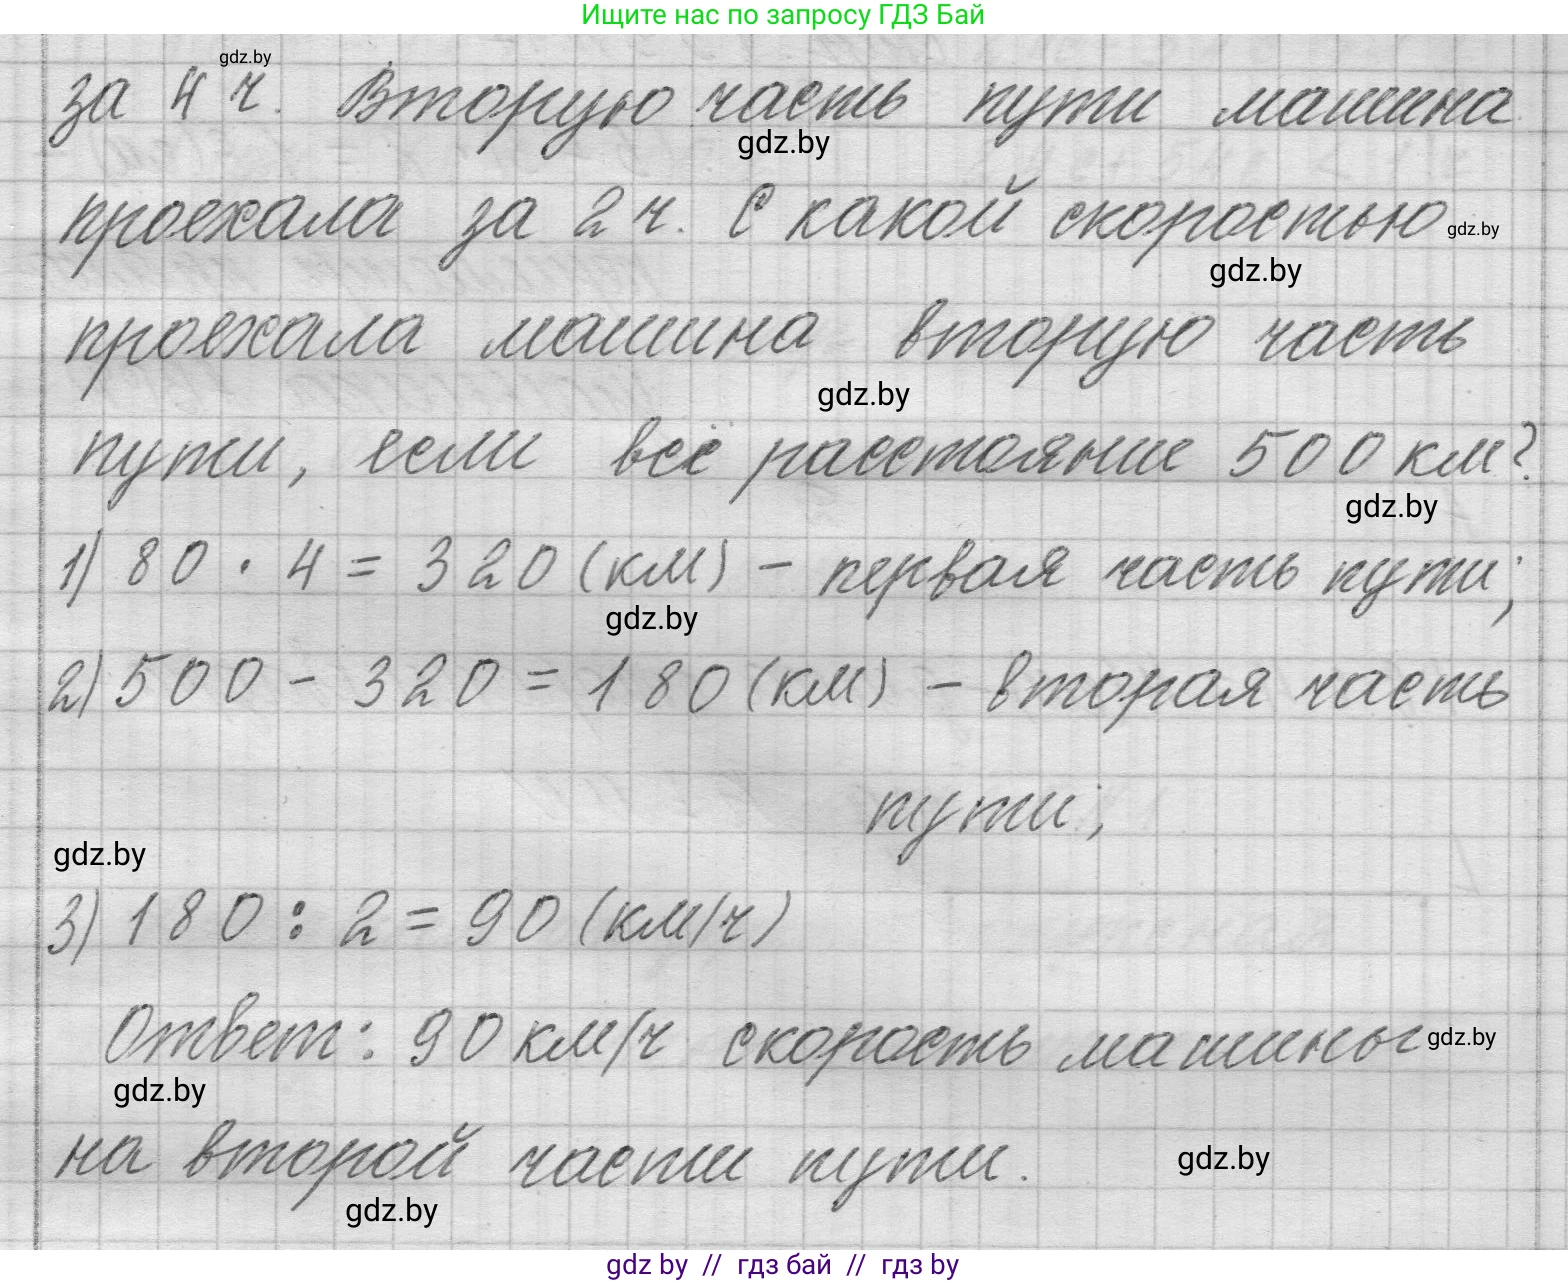 Ищите нас по запросу ГДЗ Бай
gdz.by
за 4 ч. Вторую часть пути машина
gdz.by
проехала за 2 ч. С какой скоростью gdz.by
gdz.by
проехала машина вторую часть
gdz.by
пути, если всё расстояние 500 км?
gdz.by
1) 80 · 4 = 320 (км) – первая часть пути;
gdz.by
2) 500 - 320 = 180 (км) – вторая часть
пути;
gdz.by
3) 180 : 2 = 90 (км/ч)
Ответ: 90 км/ч скорость машины gdz.by
gdz.by
на второй части пути.
gdz.by
gdz.by
gdz by // гдз бай // гдз by